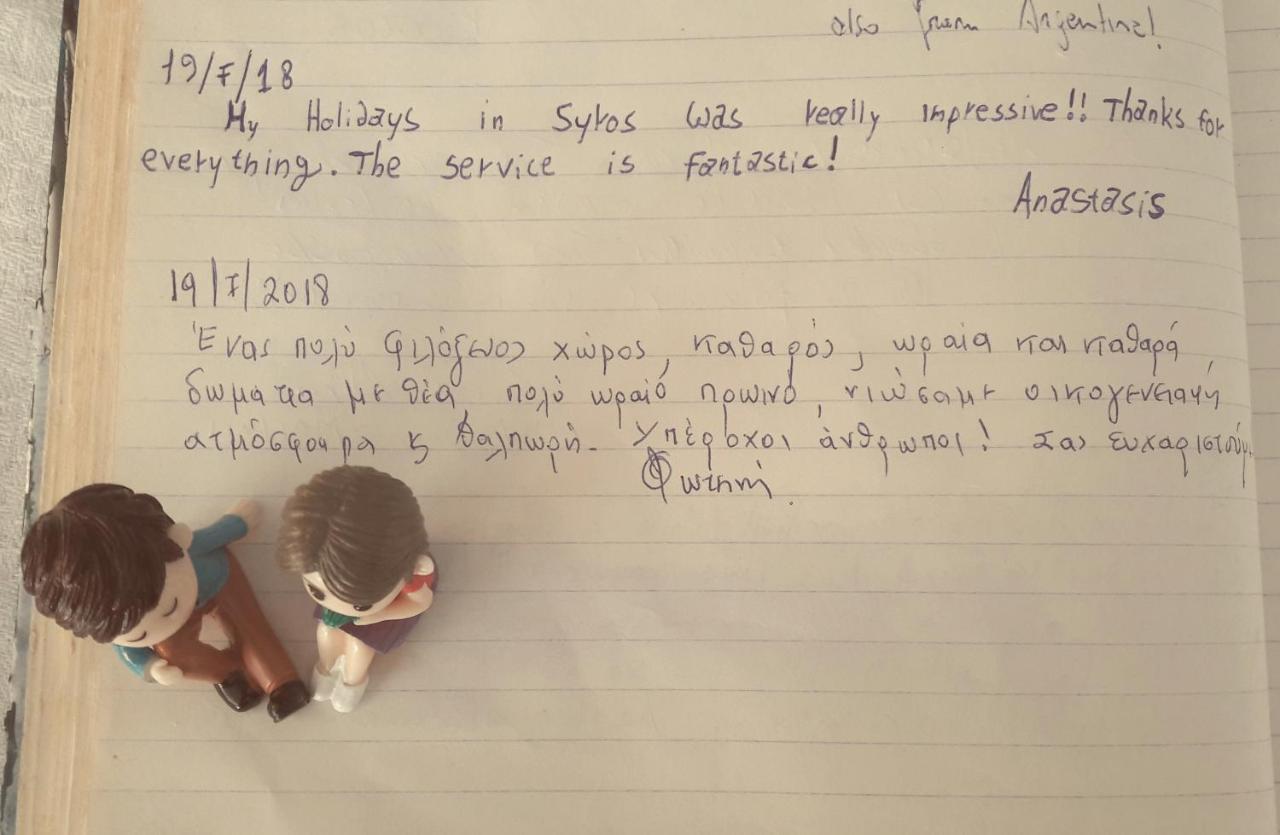 also from Argentina!
19/7/18
My Holidays in Syros was really impressive!! Thanks for
everything. The service is fantastic!
Anastasis
19/7/2018
Ένας πολύ φιλόξενος χώρος, καθαρός, ωραία και καθαρά
δωμάτια με θέα, πολύ ωραίο πρωινό, νιώσαμε οικογενειακή
ατμόσφαιρα κ θαλπωρή. Υπέροχοι άνθρωποι! Σας ευχαριστούμε
Φωτεινή.